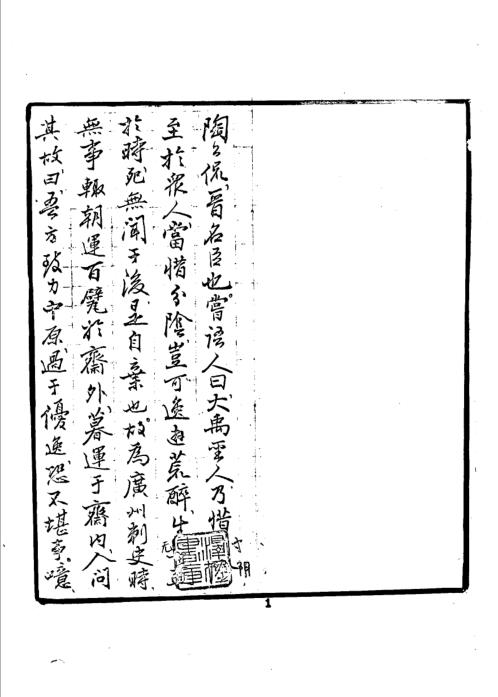 陶公侃晉名臣也。嘗語人曰大禹聖人乃惜寸陰
至於眾人當惜分陰豈可逸遊荒醉生无
於時死無聞于後是自棄也故為廣州刺史時
無事輒朝運百甓於齋外暮運于齋內人問
其故曰吾方致力中原過于優逸恐不堪事噫
1